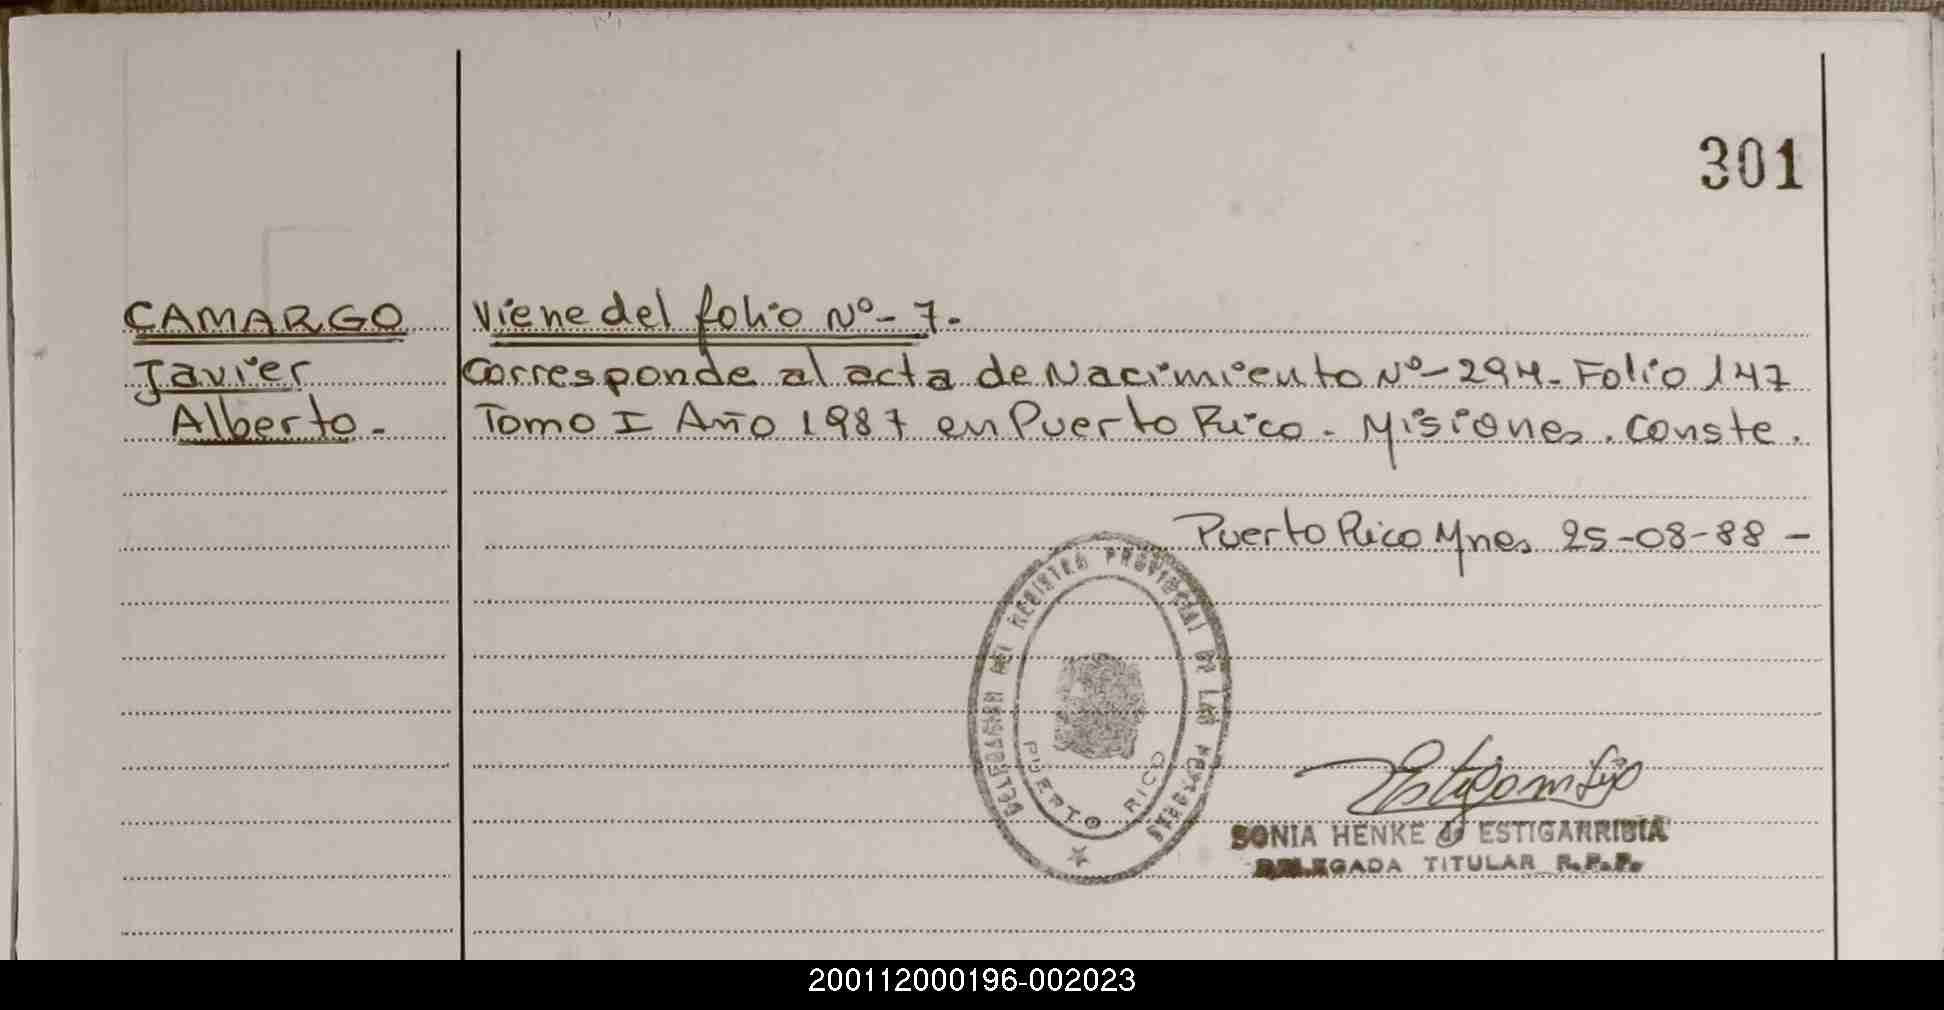 301
CAMARGO Viene del folio Nº- 7.
Javier Corresponde al acta de Nacimiento Nº- 294. Folio 147
Alberto.- Tomo I Año 1987 en Puerto Rico. Misiones. Conste.
Puerto Rico Mnes 25-08-88 -
DELEGACION DEL REGISTRO PROVINCIAL DE LAS PERSONAS
PUERTO RICO
SONIA HENKE de ESTIGARRIBIA
DELEGADA TITULAR R.P.P.
200112000196-002023